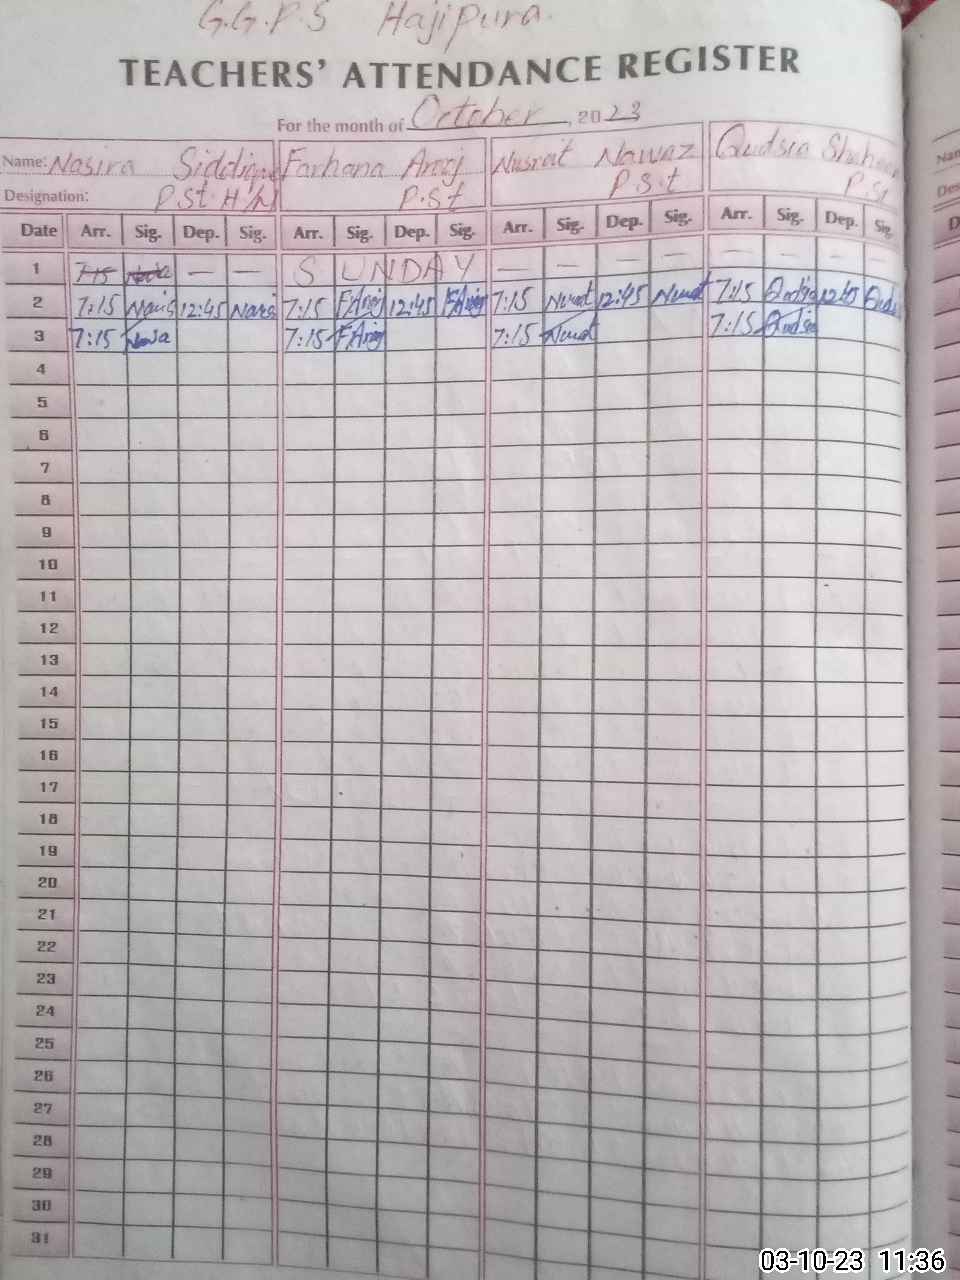 G.G.P.S Hajipura.
TEACHERS' ATTENDANCE REGISTER
For the month of October, 2023
Name: Nasira Siddique Farhana Areej Nusrat Nawaz Qudsia Shaheen
Designation: P.St H/t P.St P.S.t P.St
Date Arr. Sig. Dep. Sig. Arr. Sig. Dep. Sig. Arr. Sig. Dep. Sig. Arr. Sig. Dep. Sig.
1 7:15 — — S UNDAY — — — — — — — —
2 7:15 12:45 7:15 FAreej 12:45 FAreej 7:15 12:45 7:15 Qudsia 12:45
3 7:15 7:15 FAreej 7:15 7:15 Qudsia
4
5
6
7
8
9
10
11
12
13
14
15
16
17
18
19
20
21
22
23
24
25
26
27
28
29
30
31
03-10-23 11:36